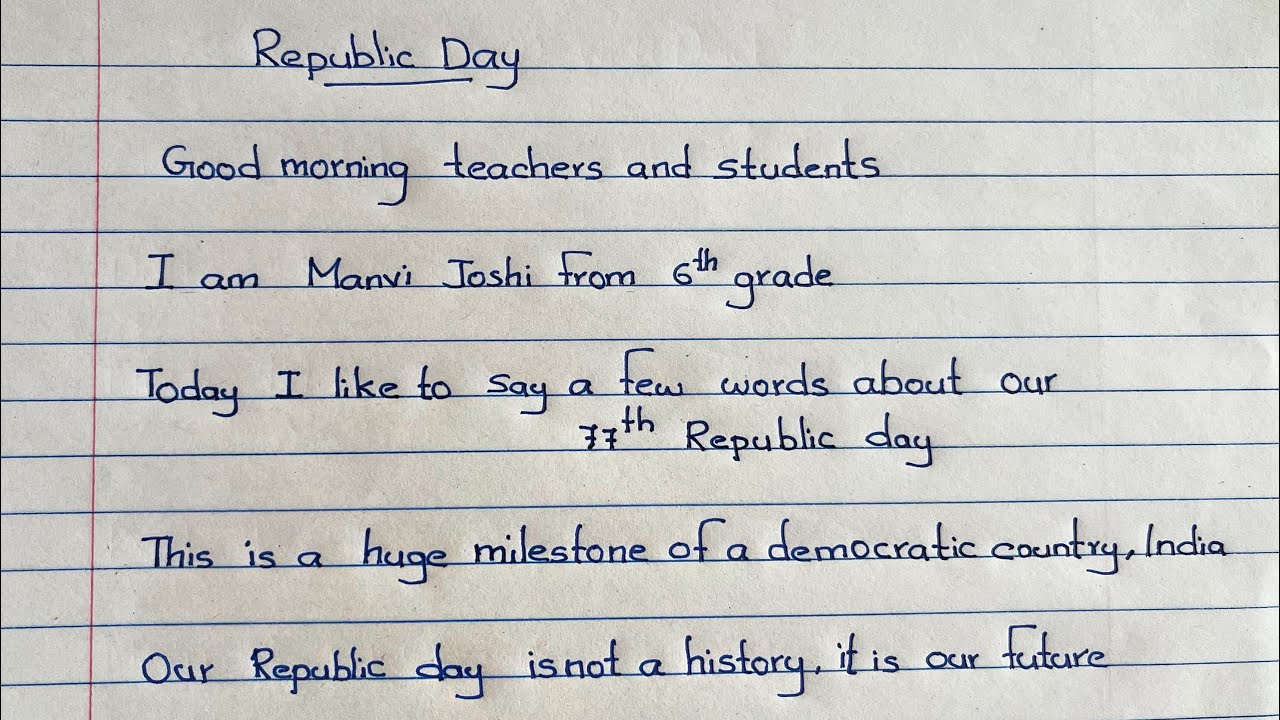 Republic Day
Good morning teachers and students
I am Manvi Joshi from 6th grade
Today I like to say a few words about our
77th Republic day
This is a huge milestone of a democratic country, India
Our Republic day is not a history, it is our future